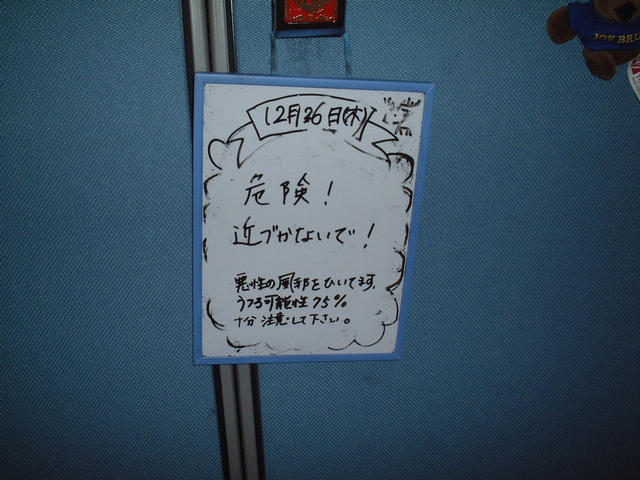 12月26日(木)
危険!
近づかないで!
悪性の風邪をひいてます。
うつる可能性75%
十分注意して下さい。
JOE BRU